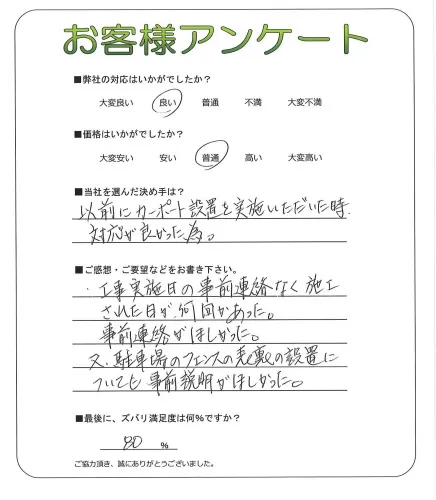 お客様アンケート
■弊社の対応はいかがでしたか?
大変良い 良い 普通 不満 大変不満
■価格はいかがでしたか?
大変安い 安い 普通 高い 大変高い
■当社を選んだ決め手は?
以前にカーポート設置を実施いただいた時、
対応が良かった為。
■ご感想・ご要望などをお書き下さい。
・工事実施日の事前連絡なく施工
された日が、何回かあった。
事前連絡がほしかった。
又、駐車場のフェンスの表裏の設置に
ついても事前説明がほしかった。
■最後に、ズバリ満足度は何%ですか?
80 %
ご協力頂き、誠にありがとうございました。